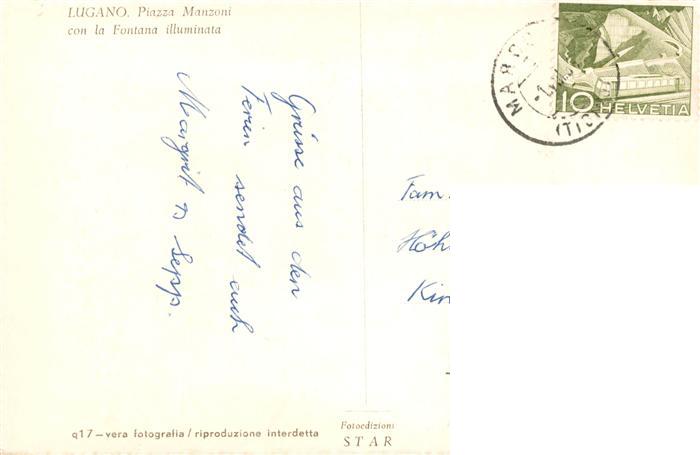 LUGANO. Piazza Manzoni
con la Fontana illuminata
Grüsse aus den
Ferin sendet euch
Margrit & Sepp.
10 HELVETIA
(TICINO)
Fam.
Höh
Kin
q17—vera fotografia / riproduzione interdetta
Fotoedizioni
STAR